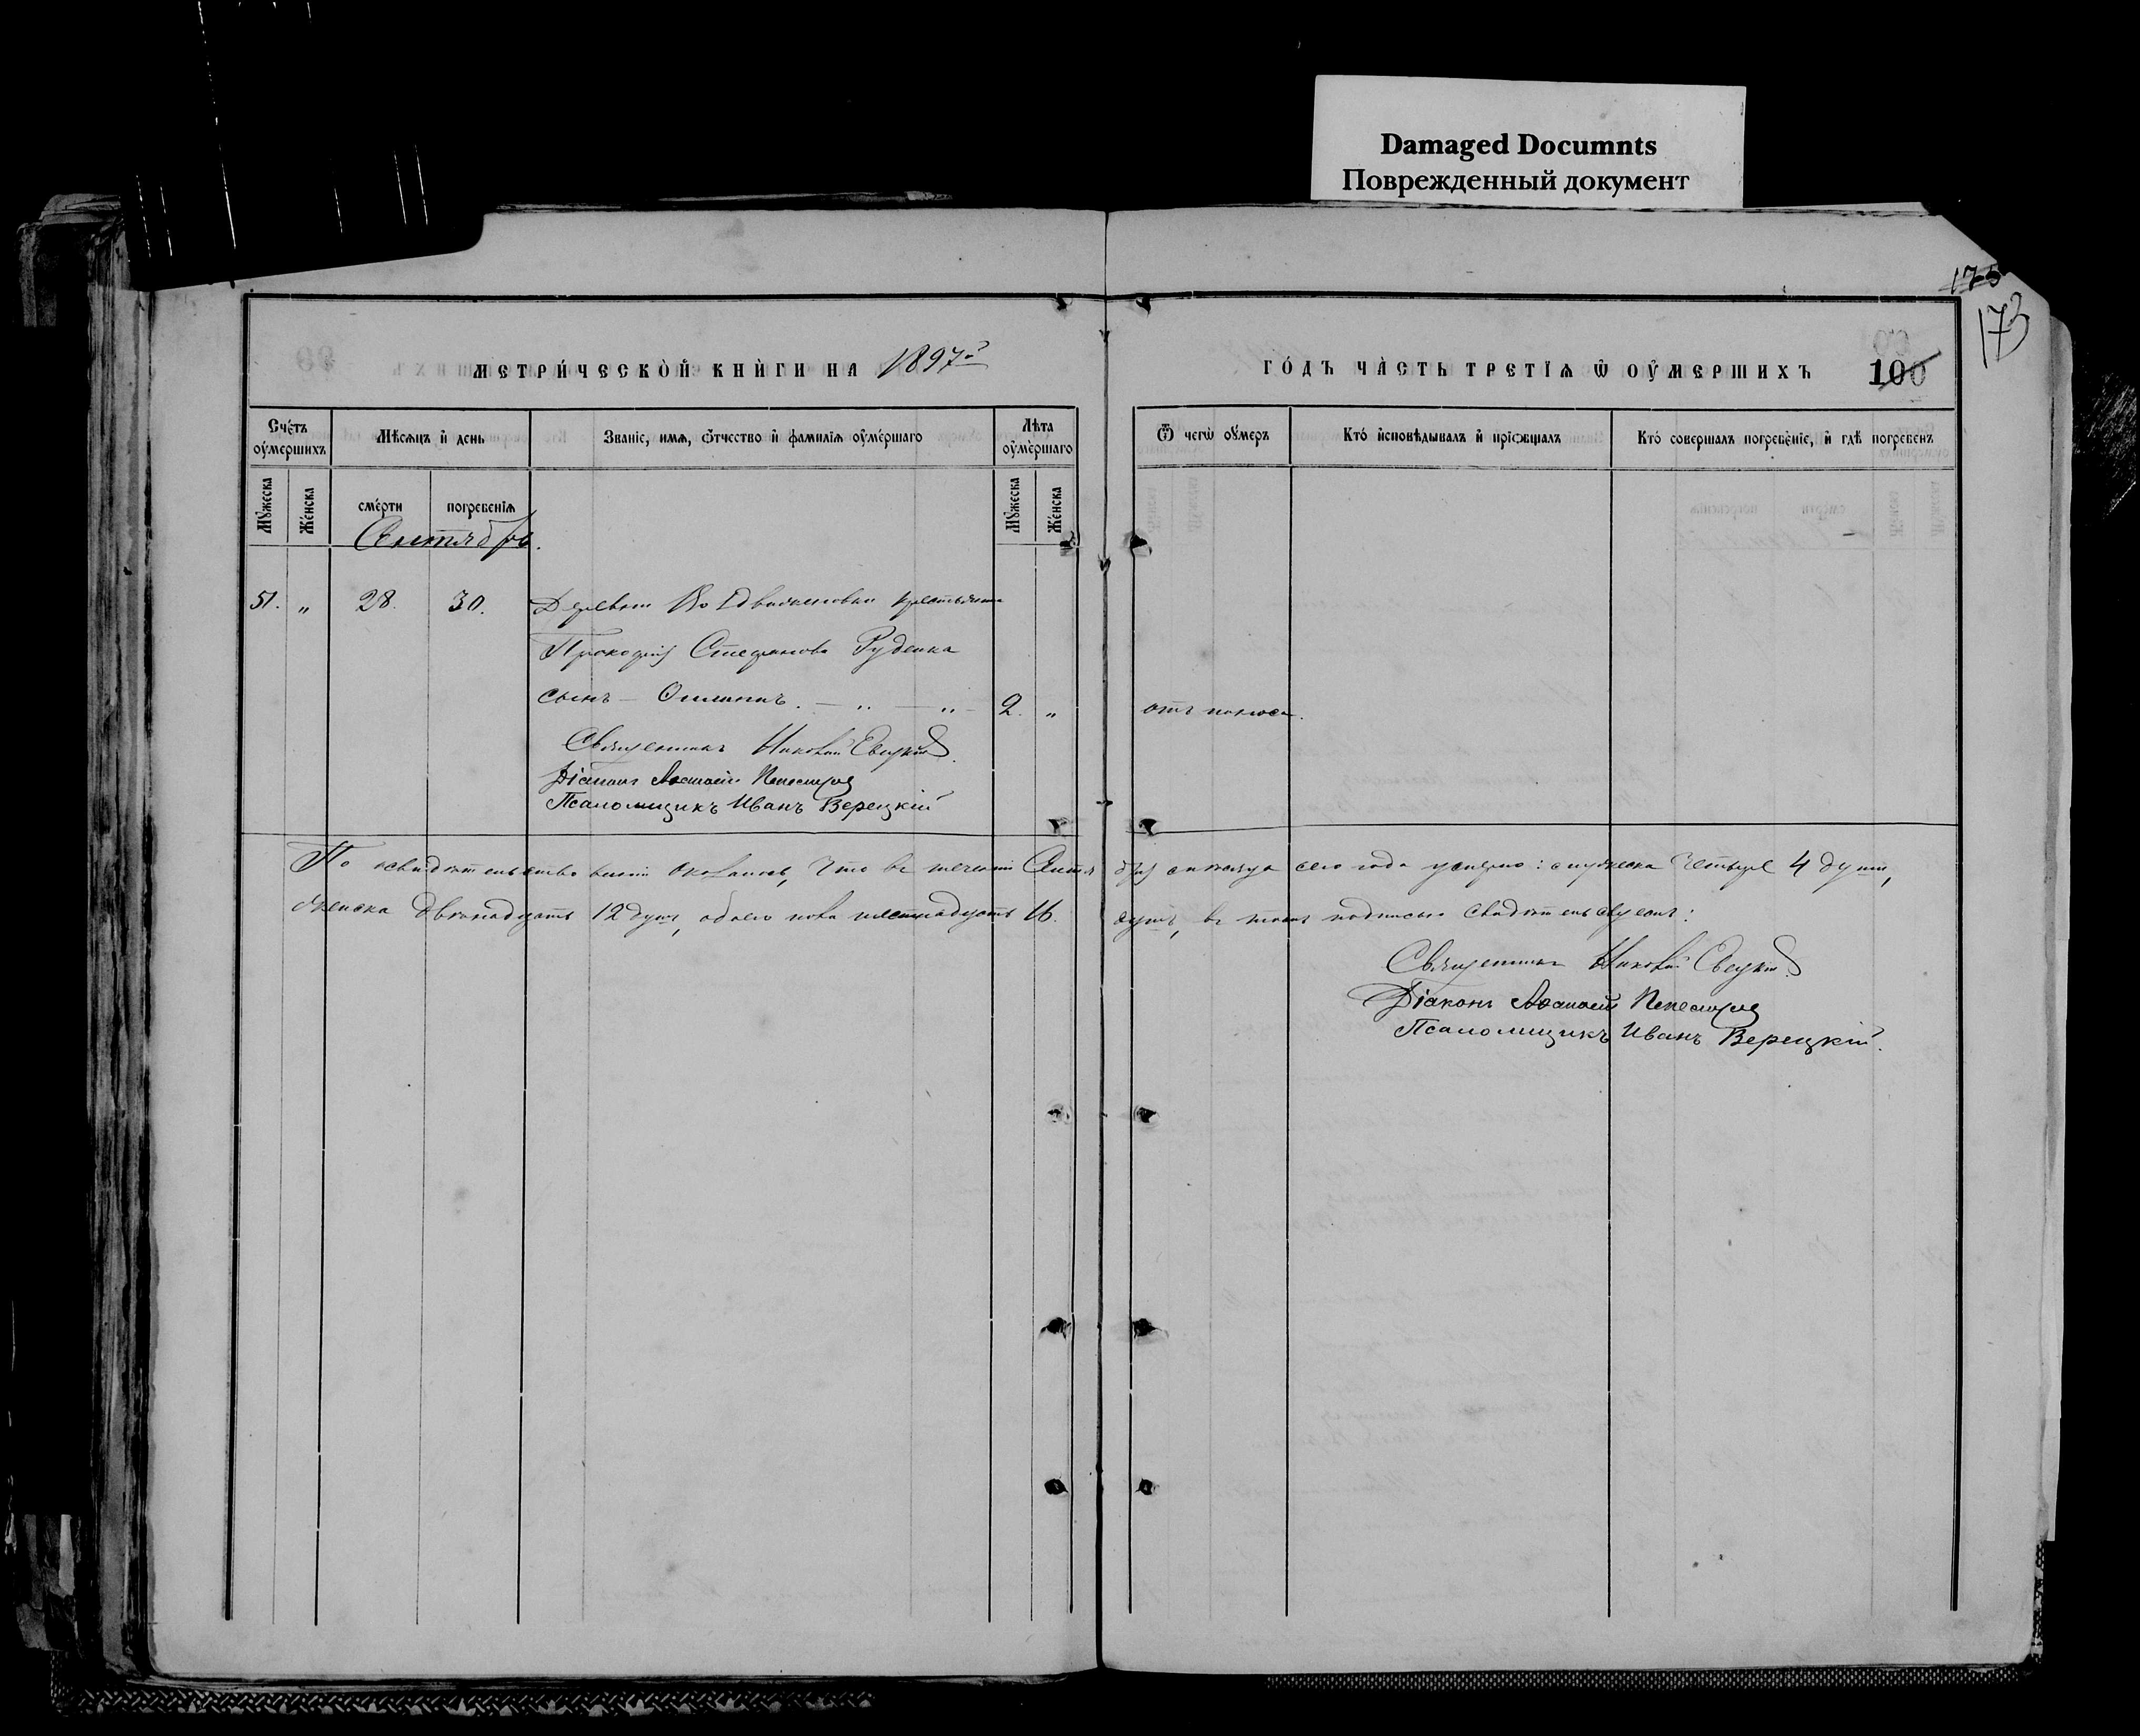 Damaged Documnts
Поврежденный документ
175
173
МЕТРИ́ЧЕСКО́Й КНИ́ГИ НА 1897й
ГО́ДЪ ЧА́СТЬ ТРЕТІѦ Ѿ ОУ҆МЕРШИХЪ 100
Сче́тъ оу҆мершихъ
Мѣсѧцъ и҆ день
Званіе, имѧ, ѻ҆тчество и҆ фамилїѧ оу҆ме́ршаго
Лѣта оу҆ме́ршаго
Ѿ чегѡ оу҆меръ
Кто́ и҆сповѣдывалъ и҆ прїѡбщалъ
Кто́ совершалъ погребе́нїе, и҆ гдѣ погребенъ
Мꙋ́жеска
Же́нска
сме́рти
погребенїѧ
Мꙋ́жеска
Же́нска
Сентябрь.
51. „ 28. 30. Деревни Воздвиженовки крестьянина
Прокофія Стефанова Руденка
сынъ — 2. „ отъ поноса.
Священникъ Николай Евецкій.
Діаконъ
Псаломщикъ Иванъ Верецкій
По освидѣтельствованіи оказалось, что въ теченіи Сентября мѣсяца сего года умерло: мужеска четыре 4 души,
женска двѣнадцать 12 душъ, обоего пола шестнадцать 16. душъ, въ томъ подписью свидѣтельствуемъ:
Священникъ Николай Евецкій.
Діаконъ
Псаломщикъ Иванъ Верецкій.